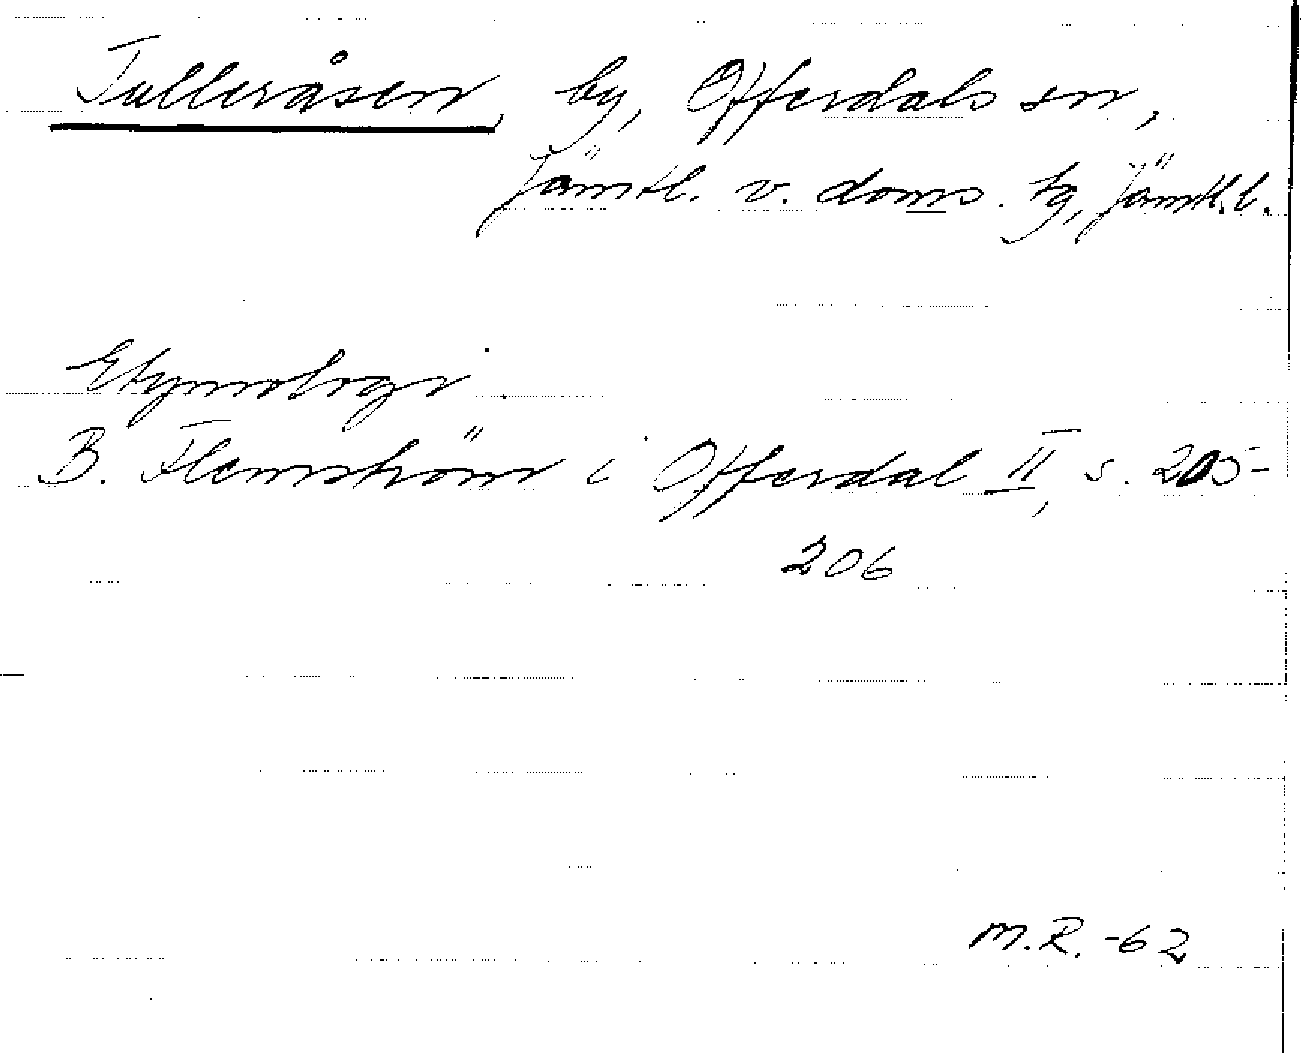 Tulleråsen, by, Offerdals sn,
Jämtl. v. doms. tg, Jämtl. l.
Etymologi
B. Flemström i Offerdal II, s. 205-
206
M.R. -62